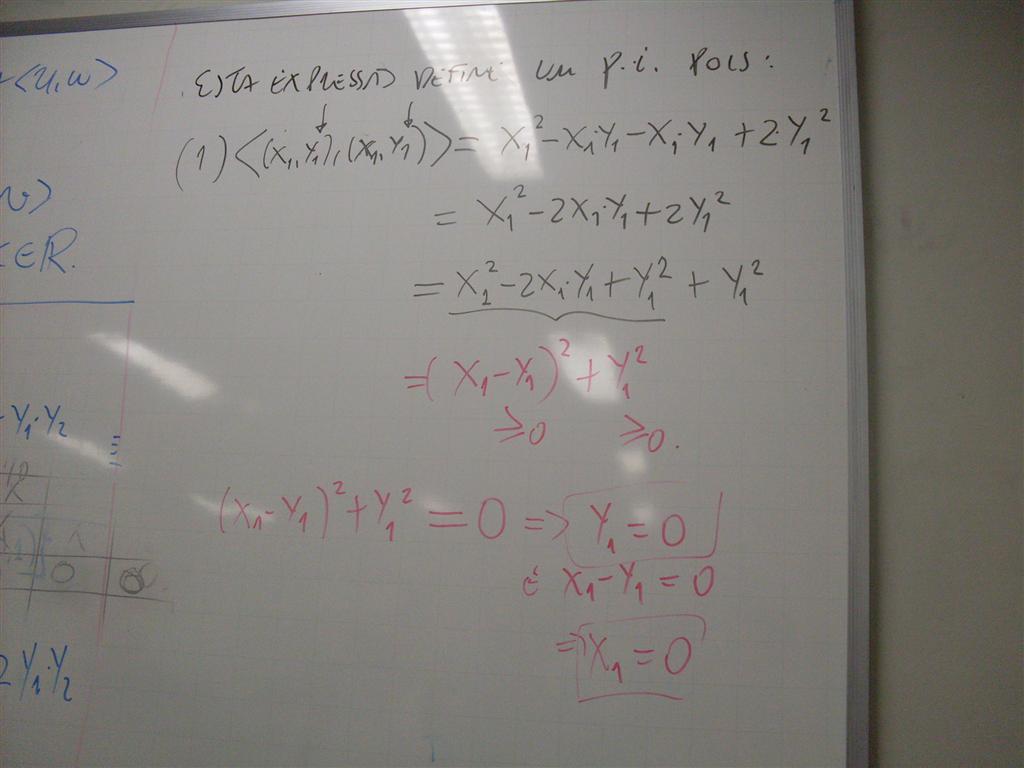 +<u,w>
ESTA EXPRESSÃO DEFINE um p.i. POIS:
(1) <(x₁,y₁),(x₁,y₁)> = x₁² - x₁·y₁ - x₁·y₁ + 2·y₁²
= x₁² - 2x₁·y₁ + 2y₁²
∈ℝ.
= x₁² - 2x₁·y₁ + y₁² + y₁²
=(x₁-y₁)² + y₁²
≥0 ≥0.
y₁·y₂
(x₁-y₁)² + y₁² = 0 => y₁ = 0
0 0
e x₁-y₁ = 0
=> x₁ = 0
2y₁·y₂